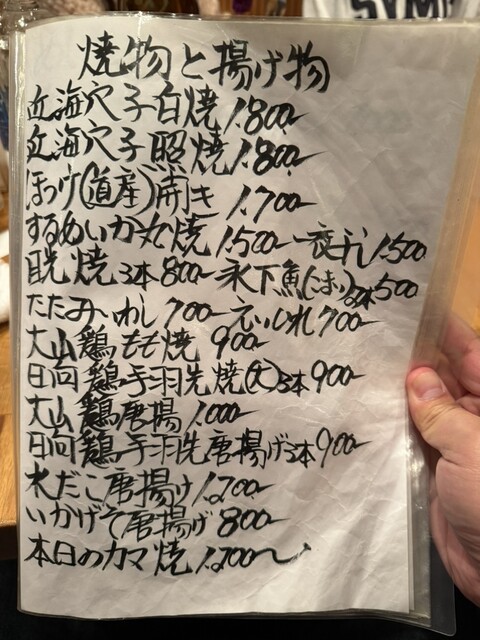 SYMP
焼物と揚げ物
近海穴子白焼 1.800-
近海穴子照焼 1.800-
ほっけ(道産)開き 1.700-
するめいか丸焼 1.500- 一夜干し 1.500
目光焼 3本 800- 氷下魚(こまい) 2本 500
たたみいわし 700- えいひれ 700-
大山鶏もも焼 900-
日向鶏手羽先焼(大) 3本 900-
大山鶏唐揚 1.000-
日向鶏手羽先唐揚げ 3本 900-
水だこ唐揚げ 1.200-
いかげそ唐揚げ 800-
本日のカマ焼 1.200〜